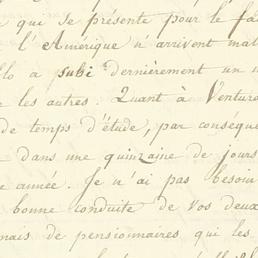 que se présente pour le fa
l'Amérique n'arrivent mal
llo a subi dernièrement un n
e les autres. Quant à Venture
de temps d'étude, par conséqu
e dans une quinzaine de jours
e année. Je n'ai pas besoin
bonne conduite de vos deux
mais de pensionnaires qui les